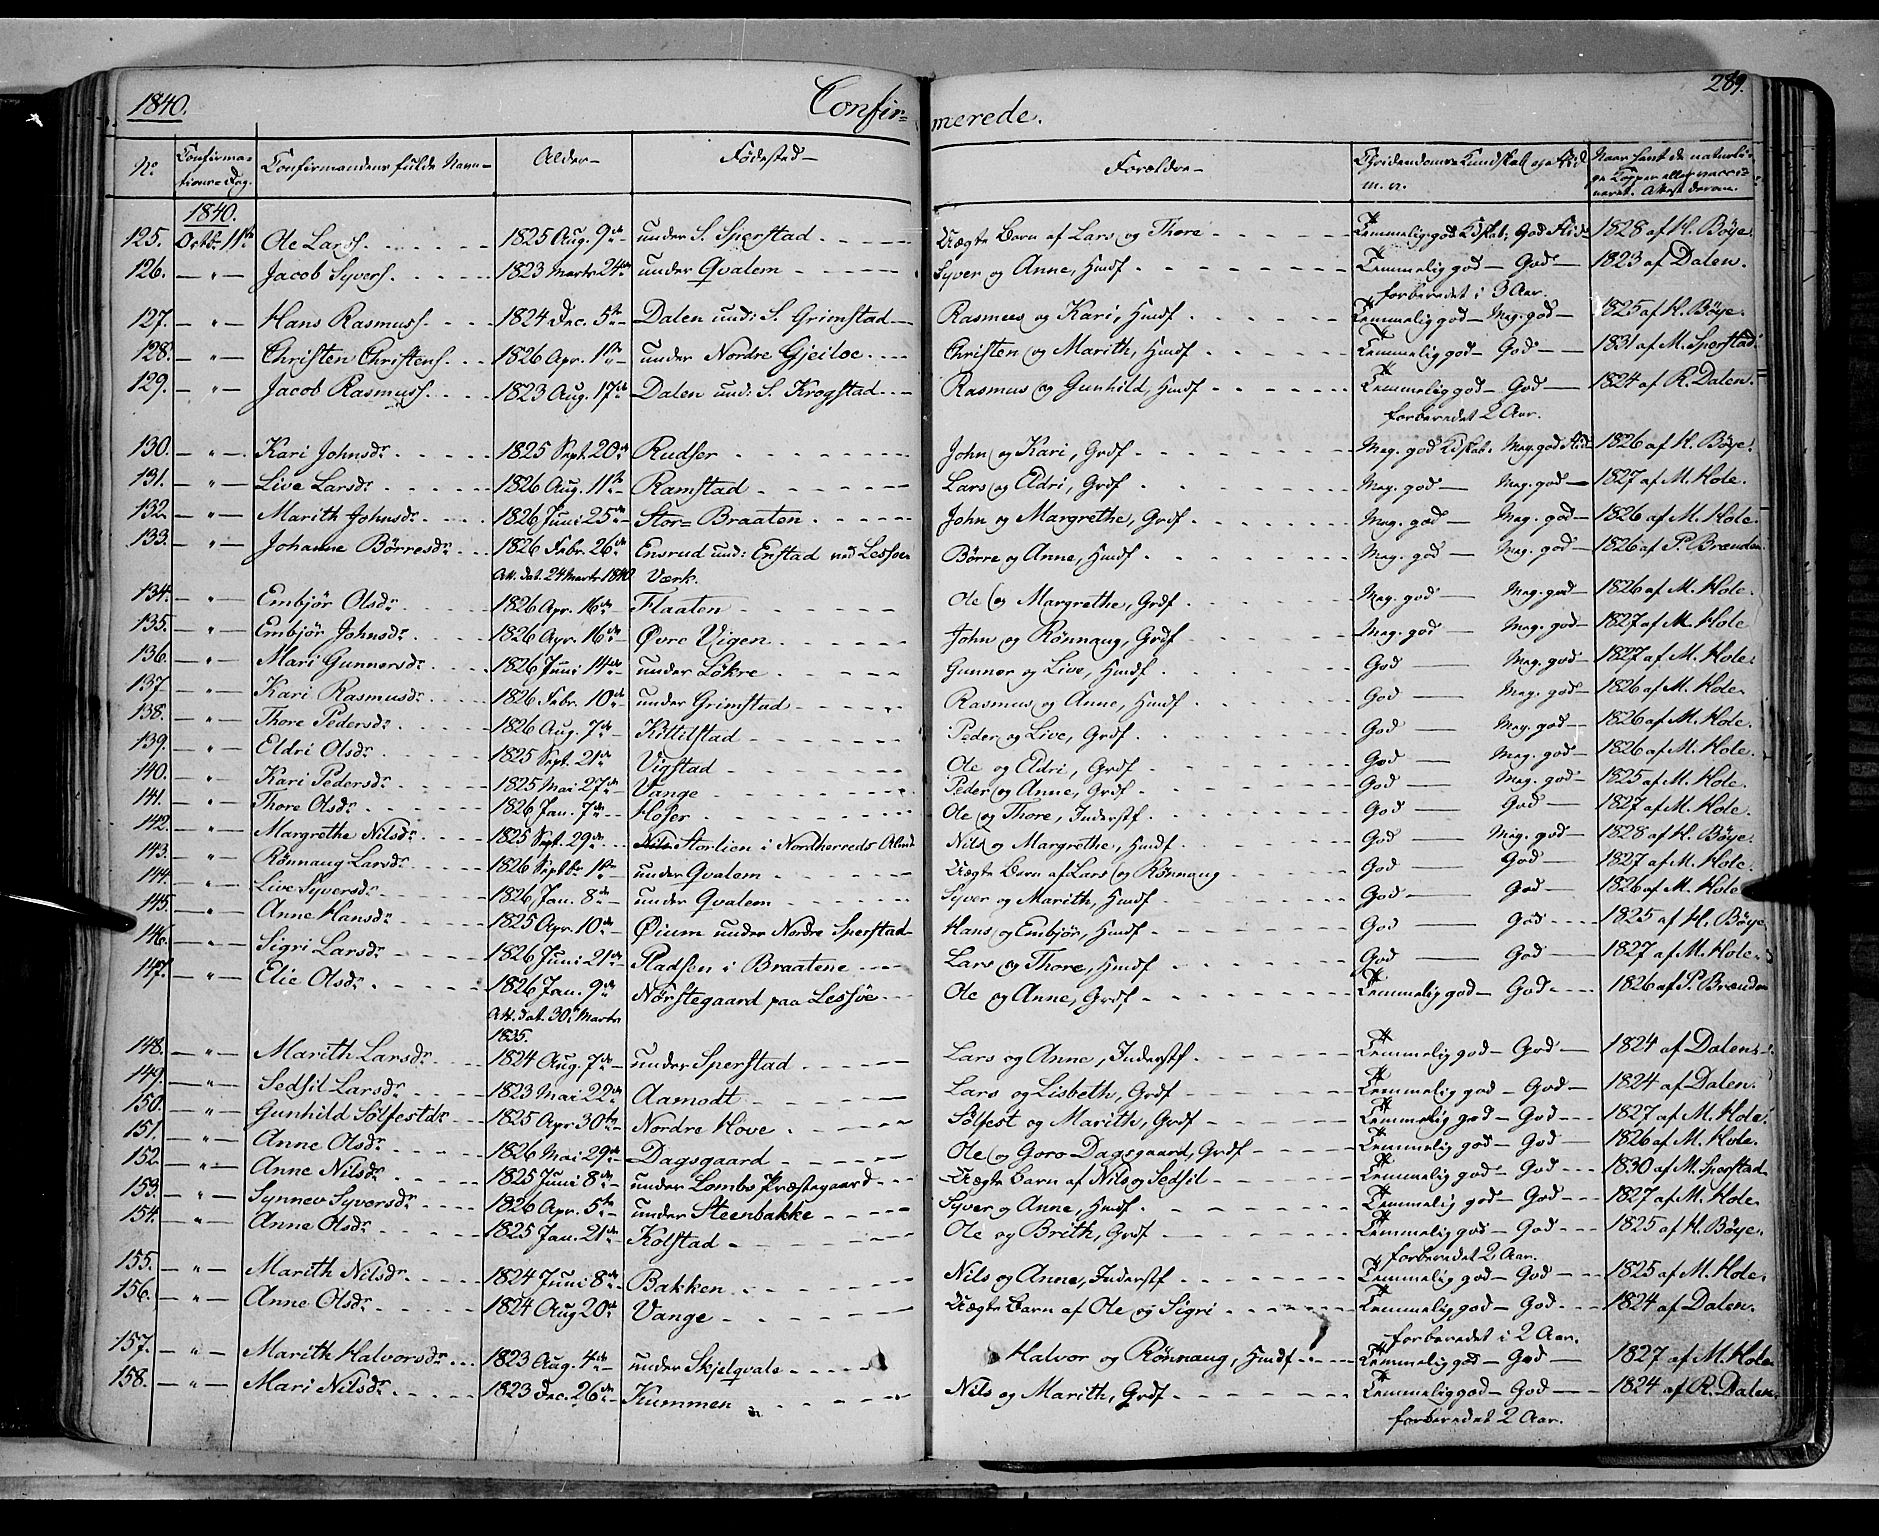 1840. Confir= merede. 289.
No Confirma= tions=Dag. Confirmandens fulde Navn= Alder= Fødested= Forældre= Christendoms Kundskab og Flid m. v. Naar havt de naturli= ge Kopper eller vacci= neret. Attest derom.
1840.
125. Octb. 11te Ole Larss. 1825 Aug. 9de under S. Sperstad Uægte Barn af Lars og Thore Temmelig god Kdskab: God Flid 1828 af H. Bøye.
126. — " — Jacob Syvers. 1823 Marts 24de under Qvalem Syver og Anne, Hmdf Temmelig god — God — 1823 af Dalen.
forberedet i 3 Aar.
127. — " — Hans Rasmuss. 1824 Dec. 5te Dalen und: S. Grimstad Rasmus og Kari, Hmdf Temmelig god — Meg. god — 1825 af H. Bøye.
128. — " — Christen Christens. 1826 Apr. 1ste under Nordre Gjeiloe Christen og Marith, Hmdf Temmelig god — God — 1831 af M. Sperstad.
129. — " — Jacob Rasmuss. 1823 Aug. 17de Dalen und: S. Krogstad Rasmus og Gunhild, Hmdf Temmelig god — God — 1824 af R. Dalen.
forberedet 2 Aar.
130. — " — Kari Johnsdr 1825 Sept. 20de Rudser John og Kari, Grdf Meg. god Kdskab: Meg. god Flid 1826 af H. Bøye.
131. — " — Live Larsdr 1826 Aug. 11te Ramstad Lars og Eldri, Grdf Meg. god — Meg. god — 1827 af M. Hole.
132. — " — Marith Johnsdr 1826 Juni 25de Stor=Braaten John og Margrethe, Grdf Meg. god — Meg. god — 1826 af M. Hole.
133. — " — Johanne Børresdr 1826 Febr. 26de Ensrud und: Enstad ved Lessøe Børre og Anne, Hmdf Meg. god — Meg. god — 1826 af P. Brænden
Att. dat. 24 Marts 1840 Værk.
134. — " — Embjør Olsdr 1826 Apr. 16de Flaaten Ole og Margrethe, Grdf Meg. god — Meg. god — 1826 af M. Hole.
135. — " — Embjør Johnsdr 1826 Apr. 16de Øvre Vigen John og Rønnaug, Grdf Meg. god — Meg. god — 1827 af M. Hole
136. — " — Mari Gunnersdr 1826 Juni 14de under Løkre Gunner og Live, Hmdf God — Meg. god 1827 af M. Hole.
137. — " — Kari Rasmusdr 1826 Febr. 10de under Grimstad Rasmus og Anne, Hmdf God — Meg. god — 1826 af M. Hole.
138. — " — Thore Pedersdr 1826 Aug. 7de Kittilstad Peder og Live, Grdf God — Meg. god — 1826 af M. Hole.
139. — " — Eldri Olsdr 1825 Sept. 21de Vigstad Ole og Eldri, Grdf God — Meg. god — 1826 af M. Hole.
140. — " — Kari Pedersdr 1825 Mai 27de Vange Peder og Anne, Grdf God — Meg. god — 1825 af M. Hole.
141. — " — Thore Olsdr 1826 Jan. 7de Hoser Ole og Thore, Inderstf. God — God — 1827 af M. Hole.
142. — " — Margrethe Nilsdr 1825 Sept. 29de Storlien i Nordherreds Alm. Nils og Margrethe, Hmdf God — Meg. god — 1828 af H. Bøye.
143. — " — Rønnaug Larsdr 1826 Septbr 1ste under Qvalem Uægte Barn af Lars og Rønnaug God — God — 1827 af M. Hole.
144. — " — Live Syversdr 1826 Jan. 8de under Qvalem Syver og Marith, Hmdf God — God — 1826 af M. Hole
145. — " — Anne Hansdr 1825 Apr. 10de Øium under Nordre Sperstad Hans og Embjør, Hmdf God — God — 1825 af H. Bøye.
146. — " — Sigri Larsdr 1826 Juni 21de Pladsen i Braatene Lars og Thore, Hmdf God — God — 1827 af M. Hole.
147. — " — Elie Olsdr 1826 Jan. 9de Nørstegaard paa Lessøe Ole og Anne, Grdf Temmelig god — God — 1826 af P. Brænden
Att. dat. 30. Marts
1835.
148. — " — Marith Larsdr 1824 Aug. 7de under Sperstad Lars og Anne, Inderstf Temmelig god — God — 1824 af Dalen.
149. — " — Sedsil Larsdr 1823 Mai 22de Aamodt Lars og Lisbeth, Grdf Temmelig god — God — 1824 af Dalen.
150. — " — Gunhild Sølfestdr 1825 Apr. 30te Nordre Hove Sølfest og Marith, Grdf Temmelig god — God — 1827 af M. Hole.
151. — " — Anne Olsdr 1826 Mai 29de Dagsgaard Ole og Goro Dagsgaard, Grdf Temmelig god — God — 1826 af M. Hole.
152. — " — Anne Nilsdr 1825 Juni 8de under Lombs Præstegaard Uægte Barn af Nils og Sedsil Temmelig god — God 1830 af M. Sperstad
153. — " — Synnev Syversdr 1826 Apr. 5te under Steenbakke Syver og Anne, Hmdf Temmelig god — God — 1827 af M. Hole.
154. — " — Anne Olsdr 1825 Jan. 21de Kolstad Ole og Brith, Grdf Temmelig god — God — 1825 af H. Bøye.
forberedet 2 Aar.
155. — " — Marith Nilsdr 1824 Juni 8de Bakken Nils og Anne, Inderstf Temmelig god — God — 1825 af M. Hole.
156. — " — Anne Olsdr 1824 Aug 20de Vange Uægte Barn af Ole og Sigri Temmelig god — God 1824 af Dalen.
forberedet i 2 Aar.
157. — " — Marith Halvorsdr 1823 Aug. 4de under Skjelqvale Halvor og Rønnaug, Hmdf Temmelig god — God — 1827 af M. Hole
158. — " — Mari Nilsdr 1823 Dec. 26de Kummen Nils og Marith, Grdf Temmelig god — God — 1824 af R. Dalen.
forberedet 2 Aar.